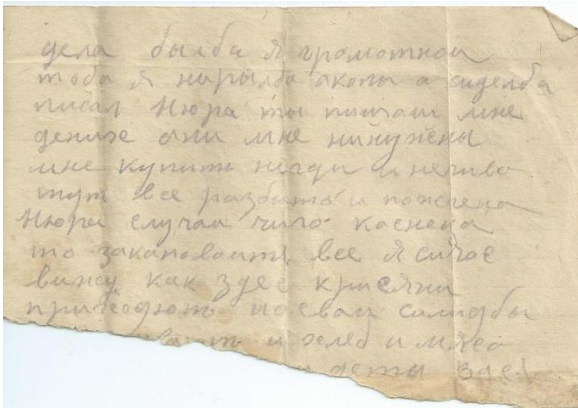 дела былба я грамотнои
тоба я нирылба акопы а сиделба
писал Нюра ты пишаш мне
дениже они мне нинужены
мне купить негди и нечиво
тут все разбито и пожжена
Нюра случаи чиго каснека
то закаповаить все я сичас
вижу как здес крисяни
приходють посваи силидбы
и хлеб и мясо
деты здес